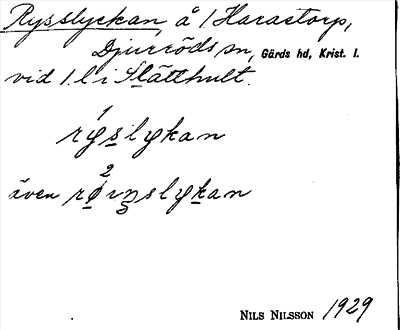 Rysslyckan, å 1 Harastorp,
Djurröds sn, Gärds hd, Krist. l.
vid 1. l i Slätthult.
1
ryslykan
2
även røvnslykan
NILS NILSSON 1929